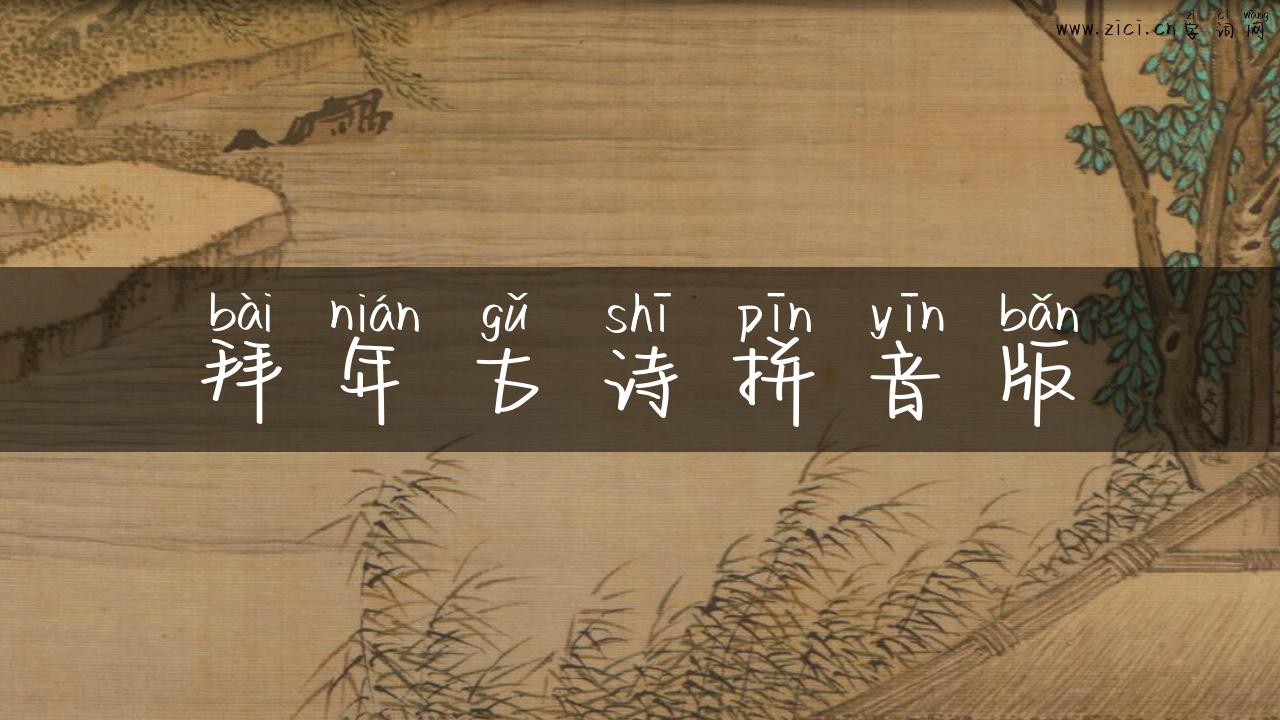 zì cí wǎng
www.zici.cn字词网
bài nián gǔ shī pīn yīn bǎn
拜年古诗拼音版